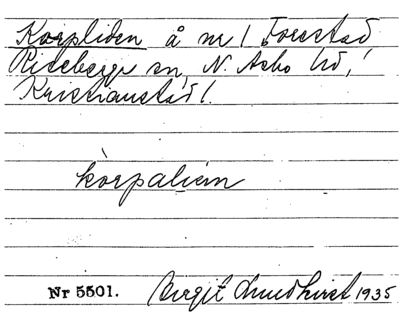 Korpliden å nr 1 Forestad
Riseberga sn, N. Åsbo hd,
Kristianstad l.
kòrpalien
Nr 5501. Birgit Lundkvist 1935